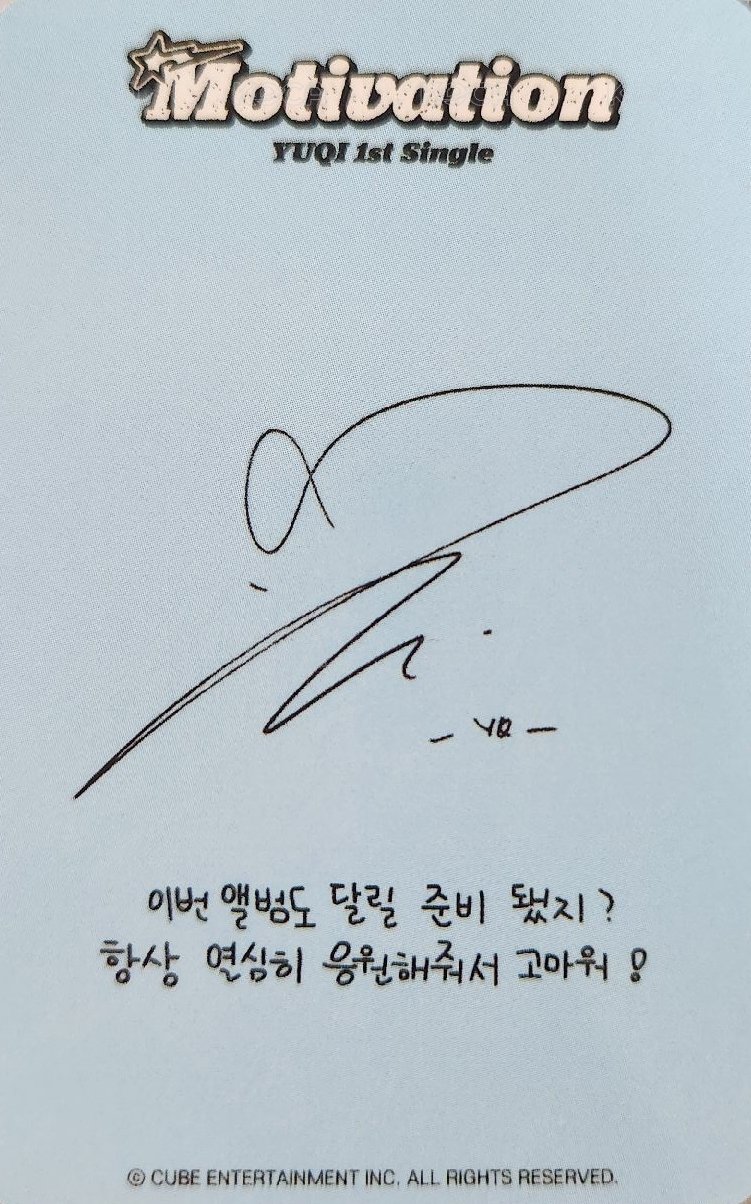 Motivation
YUQI 1st Single
- YQ -
이번 앨범도 달릴 준비 됐지?
항상 열심히 응원해줘서 고마워!
© CUBE ENTERTAINMENT INC. ALL RIGHTS RESERVED.